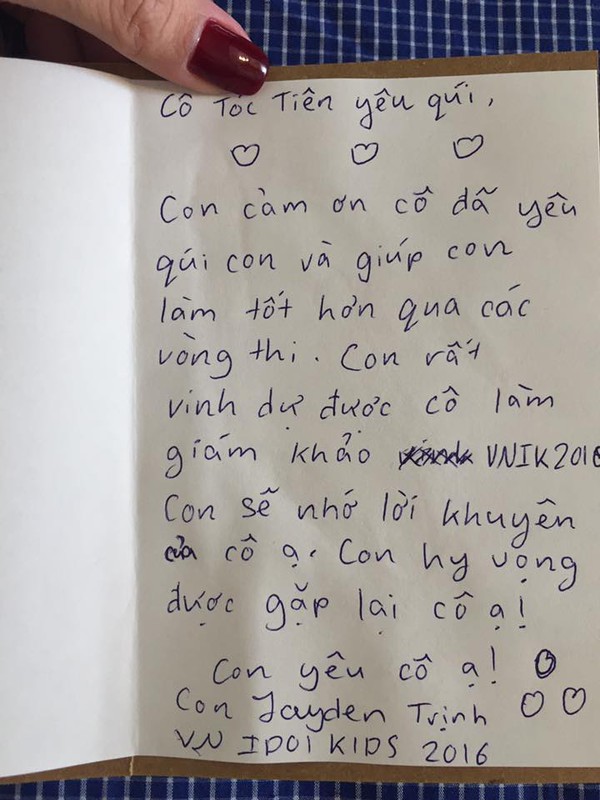 Cô Tóc Tiên yêu qúi,
Con cảm ơn cô đã yêu
qúi con và giúp con
làm tốt hơn qua các
vòng thi. Con rất
vinh dự được cô làm
giám khảo VNIK2016
Con sẽ nhớ lời khuyên
của cô ạ. Con hy vọng
được gặp lại cô ạ!
Con yêu cô ạ!
Con Jayden Trịnh
VN IDOl KIDS 2016